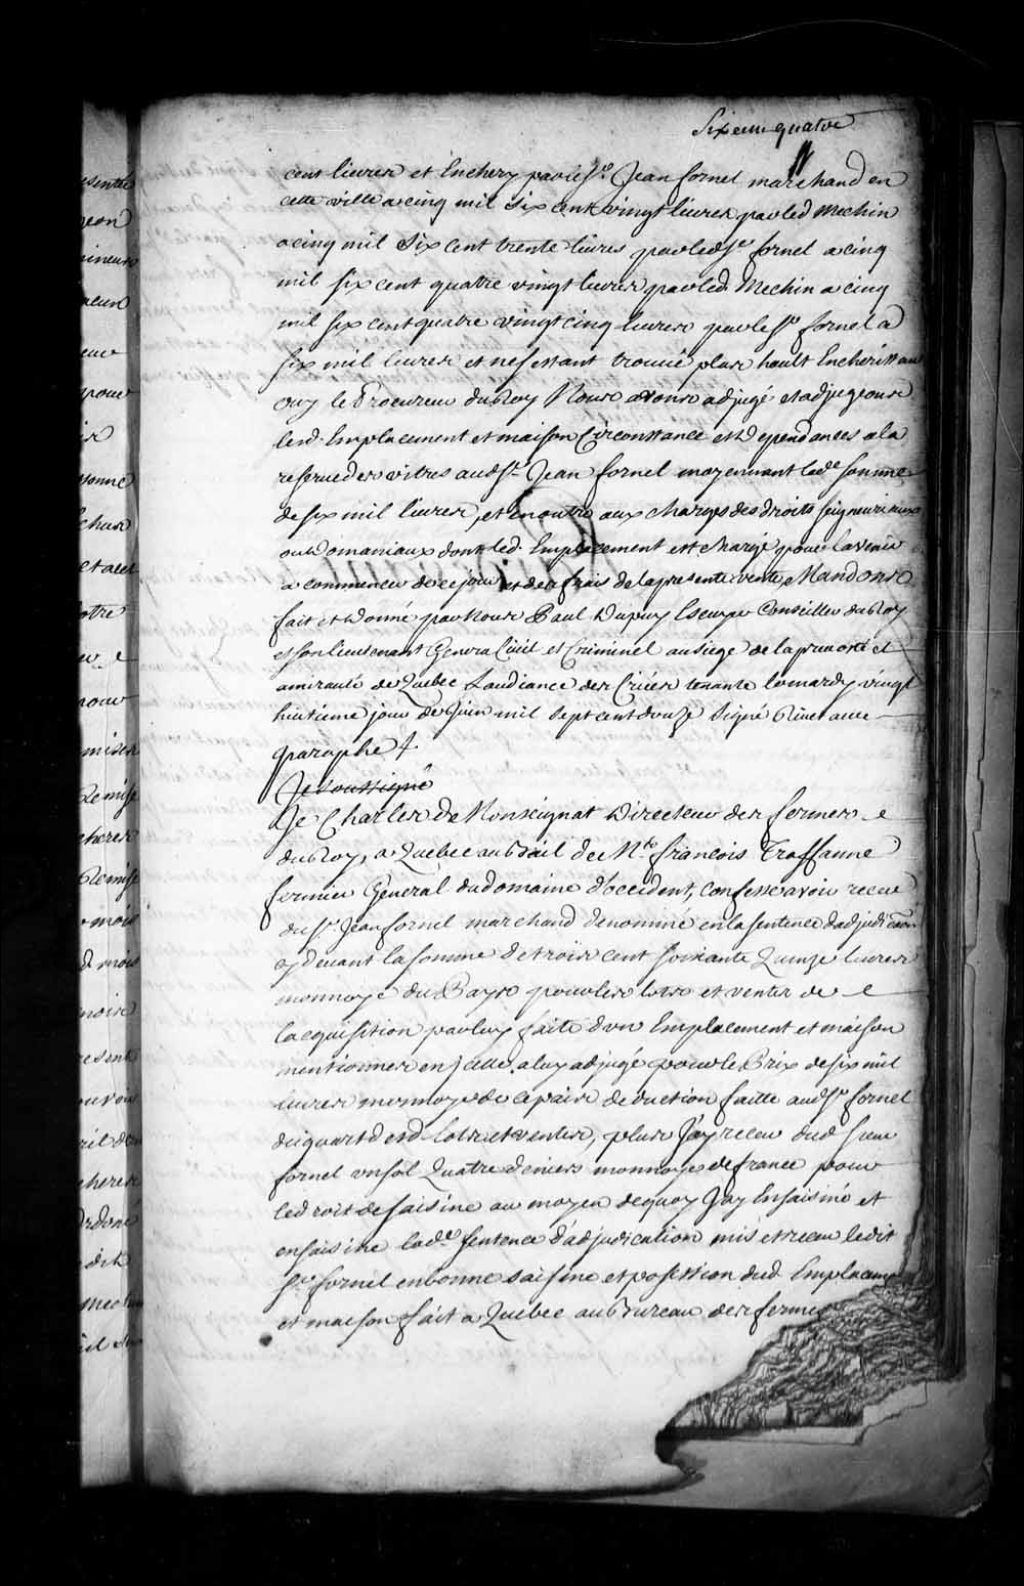 Six cent quatre
cent livres et Enchery par le Sr. Jean fornel marchand en
cette ville a cinq mil six cent vingt livres par led Mechin
a cinq mil six cent trente livres par led Sr fornel a cinq
mil six cent quatre vingt livres par led. Mechin a cinq
mil six cent quatre vingt cinq livres par le Sr fornel a
six mil livres et ne sestant trouvé plus hault Encherisseur
Ouy le Procureur du Roy Nous avons adjugé et adjugeons
lesd. Emplacement et maison Circonstance et Dependances a la
reserve des vitres aud Sr. Jean fornel moyennant lade somme
de six mil livres, et en outre aux charges des droits seigneuriaux
ou Domaniaux dont led. Emplacement est chargé pour lavenir
a commencer de ce jour et des frais de la presente vente, Mandons
fait et Donné par Nous Paul Dupuy Escuyer Conseiller du Roy
et son lieutenant General Civil et Criminel au siege de la prevosté et
amirauté de Quebec Laudiance des Criées tenante le mardy vingt
huitieme jour de Juin mil sept cent douze signé Rivet avec
paraphe /.
Je soussigné
Je Charles de Monseignat Directeur des fermes
du Roy, a Quebec au Bail de Me. francois Traffanne
fermier General du domaine d'occident, confesse avoir receu
du Sr. Jean fornel marchand denommé en la sentence dadjudicaon
cy devant la somme de trois cent soixante Quinze livres
monnoye du Pays pour les lots et ventes de
lacquisition par luy faite dun Emplacement et maison
mentionnes en Jcelle, a luy adjugé pour le Prix de six mil
livres monnoye de ce pais deduction faitte aud Sr fornel
du quart desd. lots et ventes, plus J'ay receu dud sieur
fornel un sol Quatre deniers monnoye de france pour
le droit de saisine au moyen dequoy Jay Ensaisiné et
ensaisine lade. sentence d'adjudication mis et receu ledit
Sr. fornel en bonne saisine et possession dud Emplacement
et maison fait a Quebec au Bureau des fermes